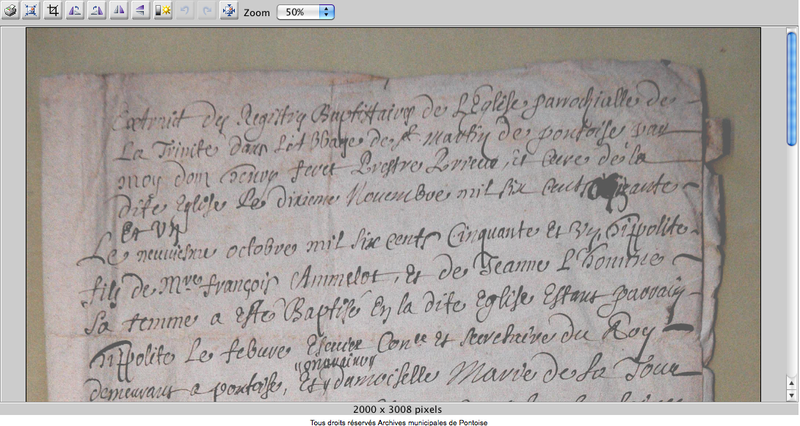 Zoom 50%
Extrait des Registres Baptistaires de L'Eglise parrochialle de
La Trinite dans L'abbaye de st Martin de pontoise par
moy dom henry feret Prestre Prieur, et cure de la
dite Eglise Le dixieme Novembre mil six cents
Et Un
Le neuviesme octobre mil six cents Cinquante et Un, hippolite
fils de Mre françois Ammelot, et de Jeanne L'homme
sa femme a este Baptisé En la dite Eglise Estant parrain
hippolite Le febure Escuier Coner et secretaire du Roy
demeurant a pontoise, Et damoiselle Marie de la Tour
2000 x 3008 pixels
Tous droits réservés Archives municipales de Pontoise